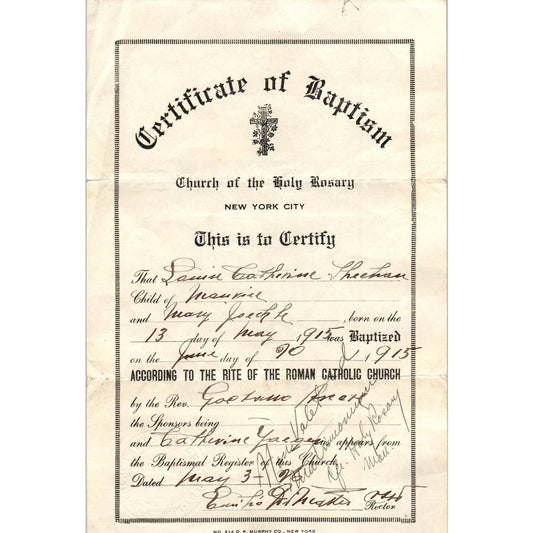 Certificate of Baptism
Church of the Holy Rosary
NEW YORK CITY
This is to Certify
That Catherine Sheehan
Child of Maurice
and Mary , born on the
13 day of May 1915 was Baptized
on the June day of 20 1915
ACCORDING TO THE RITE OF THE ROMAN CATHOLIC CHURCH
by the Rev. Gaetano
the Sponsors being
and Catherine as appears from
the Baptismal Register of this Church
Dated May 3 -
Rector
Holy Rosary
NO. 214 D. P. MURPHY CO.-NEW YORK